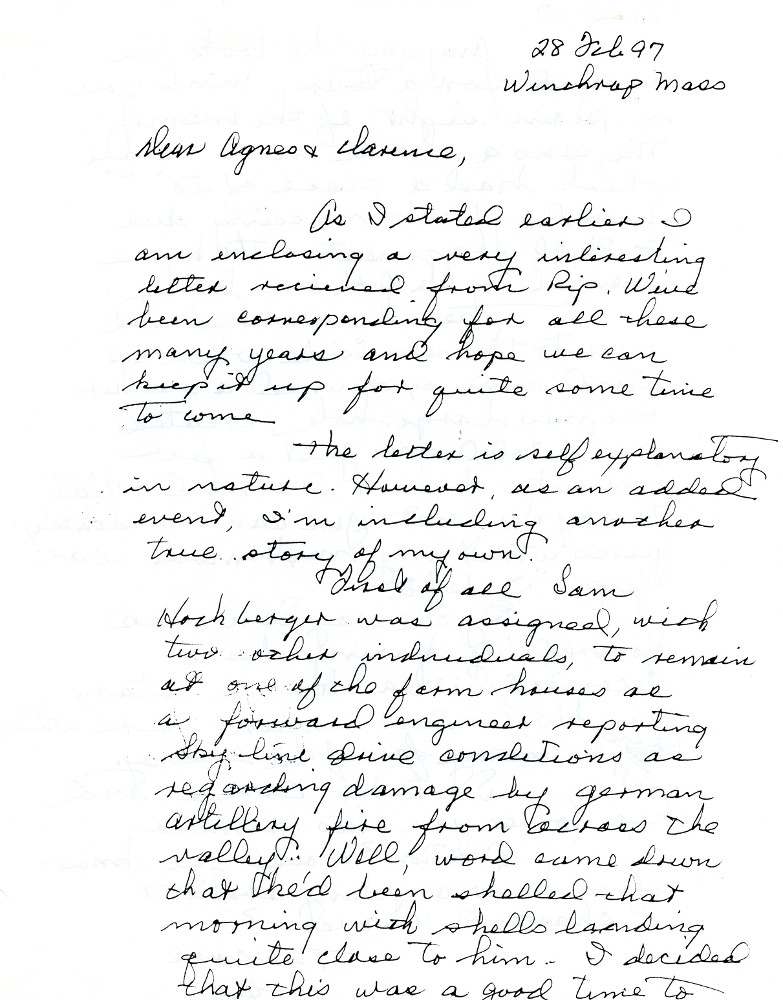 28 Feb 97
Winthrop Mass
Dear Agnes & Clarence,
As I stated earlier I
am enclosing a very interesting
letter recieved from Rip. We've
been corresponding for all these
many years and hope we can
keep it up for quite some time
to come
The letter is self explanatory
in nature. However, as an added
event, I'm including another
true story of my own.
First of all Sam
Hochberger was assigned, with
two other individuals, to remain
at one of the farm houses as
a forward engineer reporting
Sky line drive conditions as
regarding damage by german
artillery fire from across the
valley. Well, word came down
that he'd been shelled that
morning with shells landing
quite close to him. I decided
that this was a good time to